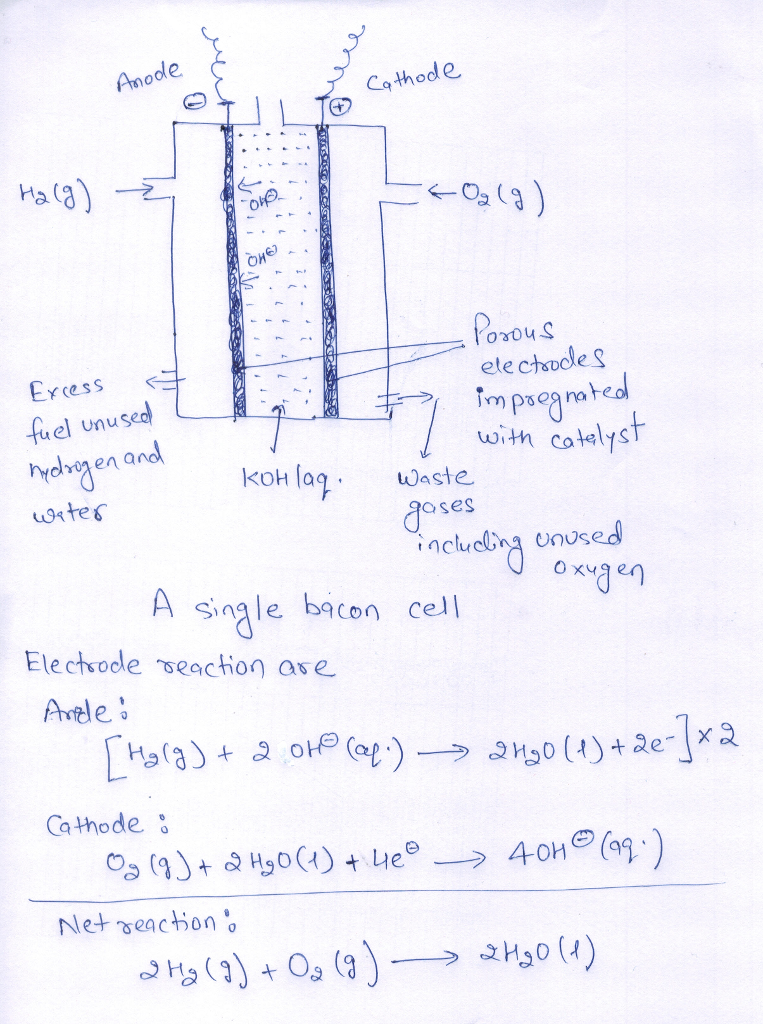 Anode
⊖
Cathode
⊕
H2(g)
O2(g)
OH⊖
OH⊖
Porous
electrodes
impregnated
with catalyst
Excess
fuel unused
hydrogen and
water
KOH(aq.
Waste
gases
including unused
oxygen
A single bacon cell
Electrode reaction are
Anode:
[H2(g) + 2 OH⊖ (aq.) → 2H2O(l) + 2e-] x 2
Cathode :
O2(g) + 2H2O(l) + 4e⊖ → 4OH⊖(aq.)
Net reaction:
2H2(g) + O2(g) → 2H2O(l)